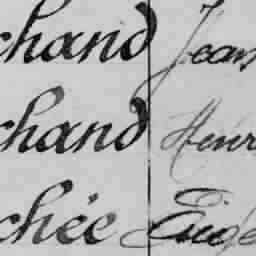 chand Jean
chand Henr
chée Eugè